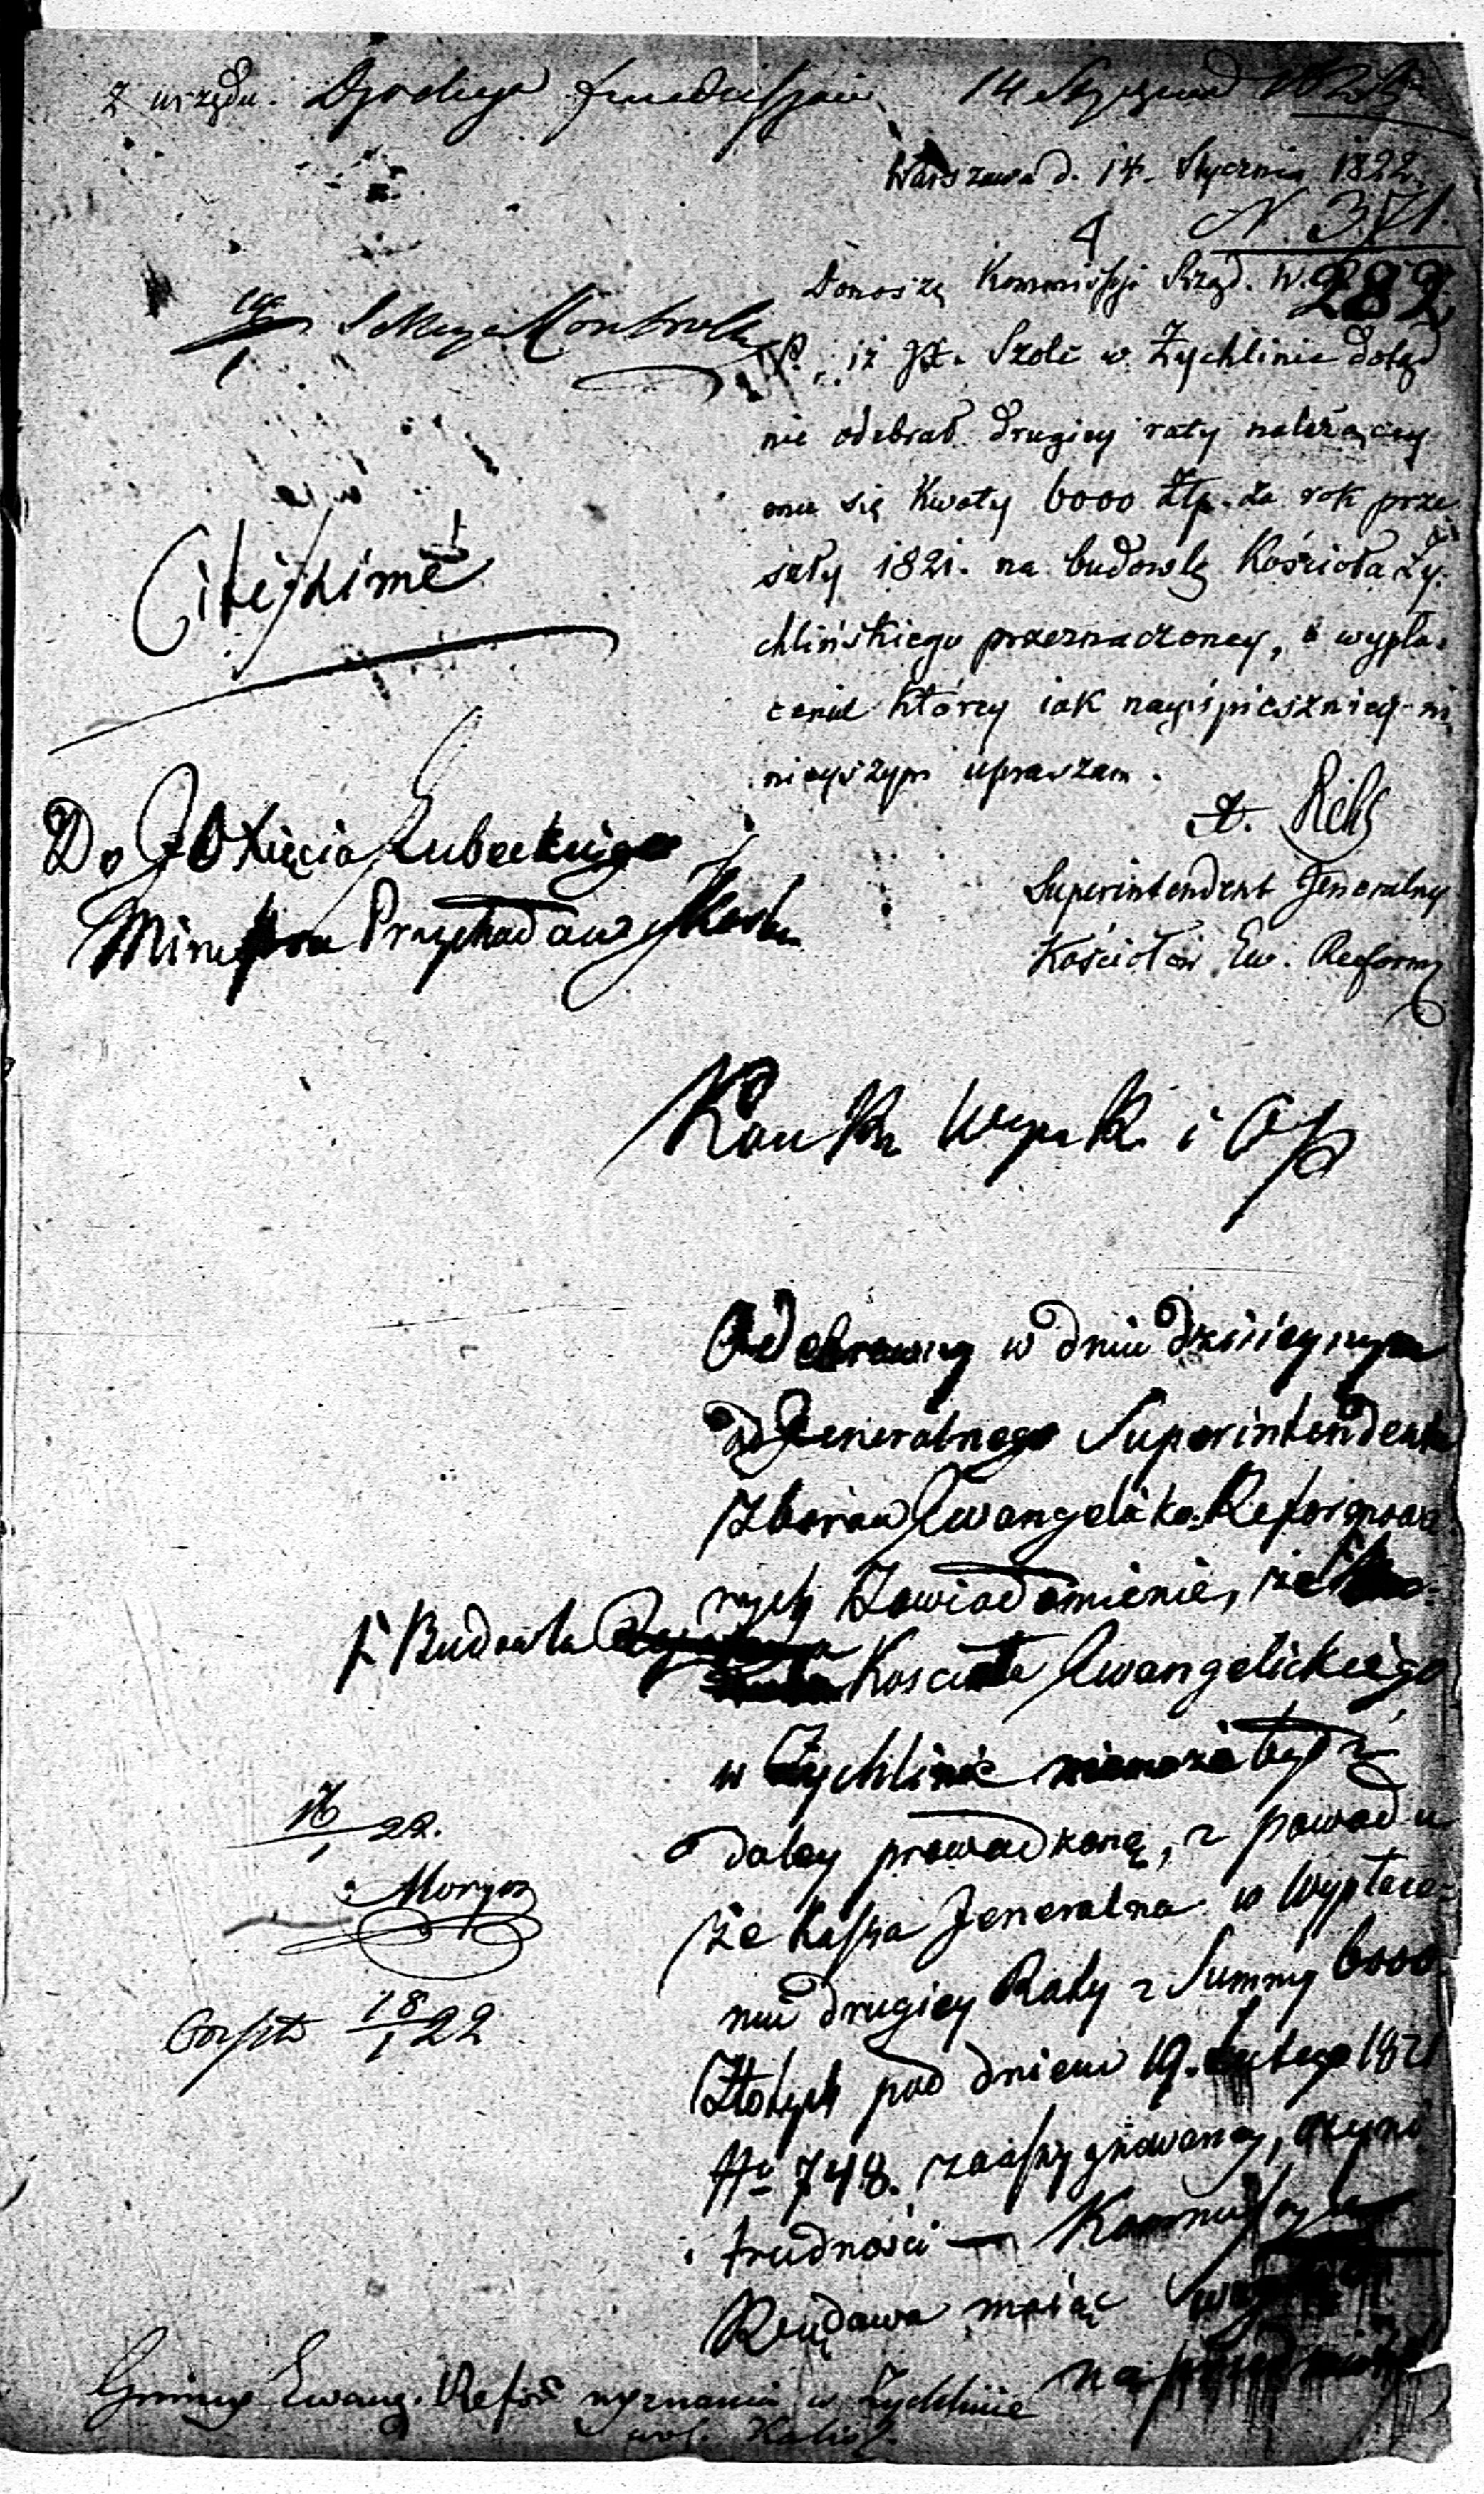 z urzędu. 14 Stycznia
Warszawa d. 14. Stycznia 1822.
N. 371.
4
282
Donoszę Kommissyi Rząd. W. R.
Sekcya Kontrolli
P. iż JX. Szolc w Żychlinie dotąd
nie odebrał drugiey raty należącey
mu się Kwoty 6000 Złp. za rok prze
szły 1821. na budowlę Kościoła Ży-
chlińskiego przeznaczoney, o wypła-
cenie którey iak nayśpieszniey ni
nieyszym upraszam.
Citissime
Superintendent Jeneralny
Kościołów Ew. Reform
Do JO Xięcia Lubeckiego
Ministra Przychodów y Skarbu
i
Odebrawszy w dniu dzisieyszym
od Generalnego Superintendenta
Zborów Ewangelicko-Reformowa
nych zawiadomienie, że
F Budowla
Kościoła Ewangelickiego
w Żychlinie niemoże bydź
daley prowadzoną, z powodu
że Kassa Jeneralna w wypłace-
niu drugiey Raty z Summy 6000
Złotych pod dniem 19. Lutego 1821
No 748. zaassygnowaney, czyni
trudności — Kommissya
Rządowa maiąc wzgląd
na
16/1 22.
18/1 22
Gminy Ewang. Refor. wyznania w Żychlinie
woj. Kalisz.